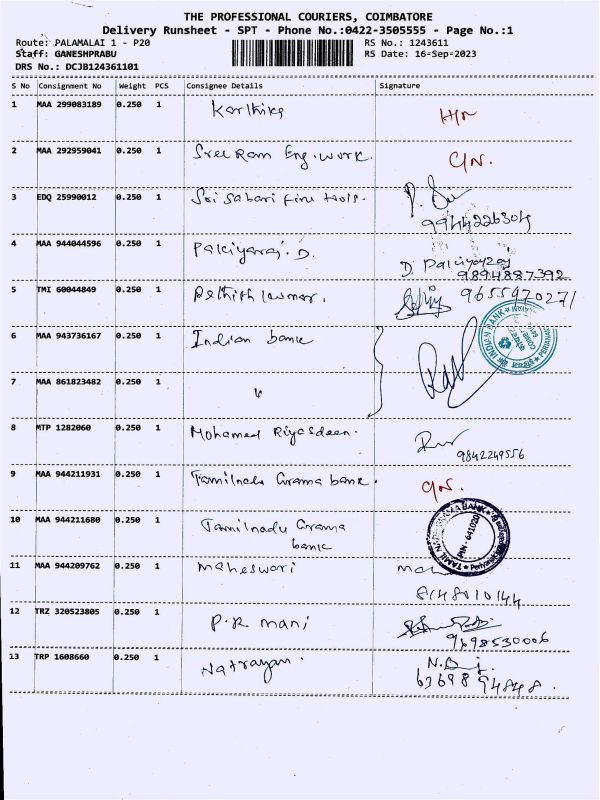 THE PROFESSIONAL COURIERS, COIMBATORE
Delivery Runsheet - SPT - Phone No.:0422-3505555 - Page No.:1
Route: PALAMALAI 1 - P20 RS No.: 1243611
Staff: GANESHPRABU RS Date: 16-Sep-2023
DRS No.: DCJB124361101
S No Consignment No Weight PCS Consignee Details Signature
1 MAA 299083189 0.250 1 Karthika
2 MAA 292959041 0.250 1 Sree Ram Eng. work.
3 EDQ 25990012 0.250 1 Sri Sabari fine tools.
9944226304
4 MAA 944044596 0.250 1 Palciyaraj. D.
D. Palciyaraj
9894887392
5 TMI 60044849 0.250 1 9655970271
6 MAA 943736167 0.250 1 Indian bank
INDIAN BANK
7 MAA 861823482 0.250 1 "
8 MTP 1282060 0.250 1 Mohamed Riyasdeen.
9842249556
9 MAA 944211931 0.250 1 Tamilnadu Grama bank.
10 MAA 944211680 0.250 1 Tamilnadu Grama
bank
TAMIL NADU GRAMA BANK
641020
11 MAA 944209762 0.250 1 Maheswari
8148010144
12 TRZ 320523805 0.250 1 P.R mani
9698530006
13 TRP 1608660 0.250 1 Natrayan.
63698 94848.